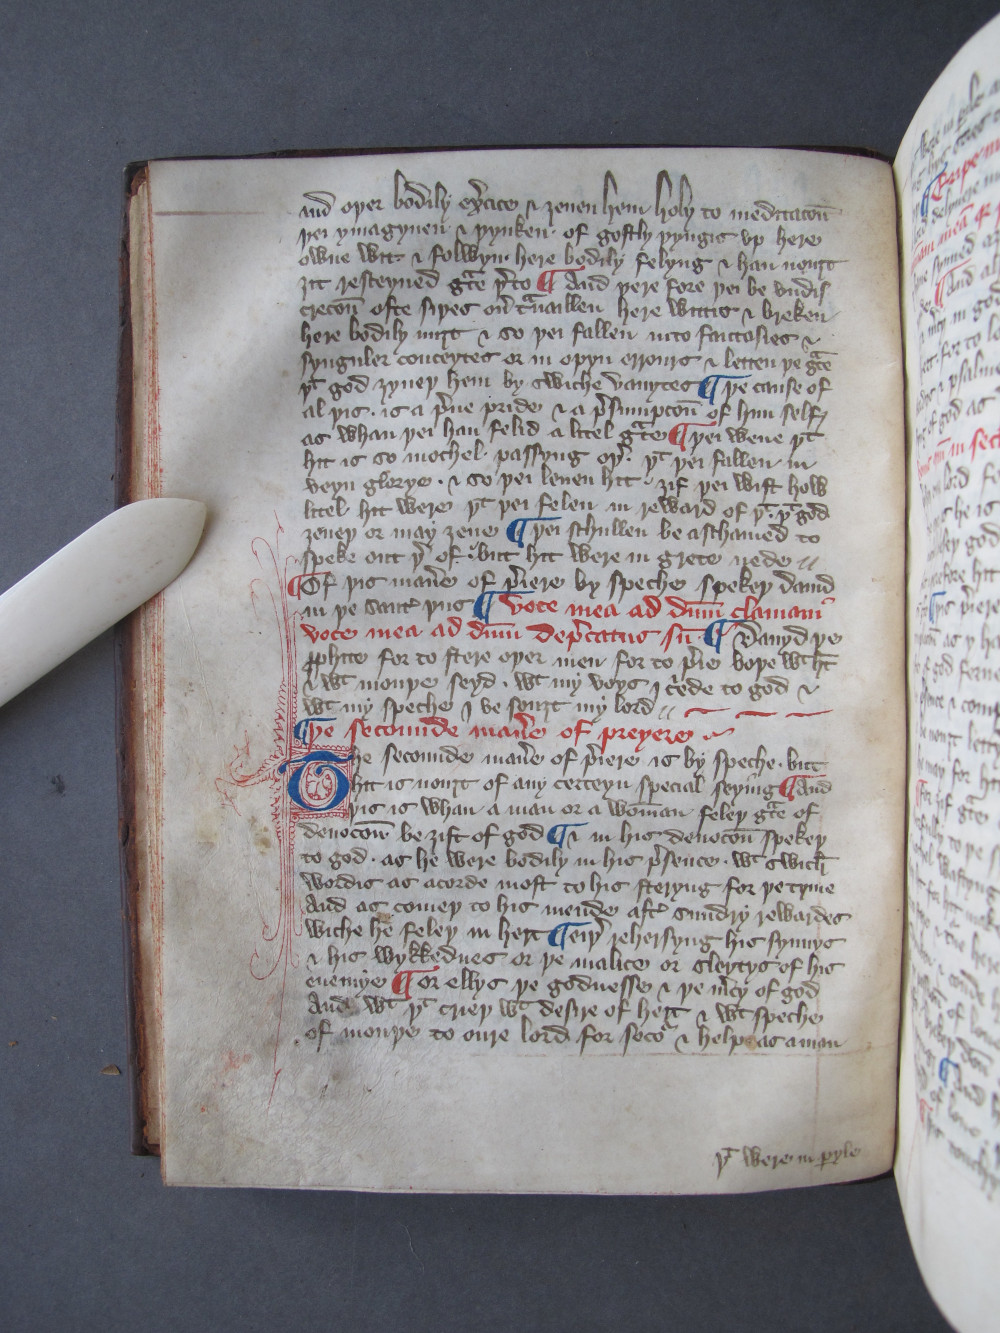 and oþer bodily exᵉcice & ȝeuen hem holy to meditacoñ
þei ymagynen & þynken · of gostly þyngis vp here
owne wit & folwyn here bodily felyng & han nouȝt
ȝit resceyued gᵃce þᵉto ¶ And þere fore þei be vndis
crecoñ ofte siþes ouᵉ tᵃuaillen here wittis & breken
here bodily miȝt & so þei fallen into fantasies &
synguler conceytes or in opyn errours & letten þe gᵃce
þᵗ god ȝyueþ hem by swiche vanytes ¶ þe cause of
al þis · is a pᵉue pride & a pᵉsumpcoñ of him self
as whan þei han felid a litel gᵃce ¶ þei wene þᵗ
hit is so mochel · passyng oþᵉ þᵗ þei fallen in
veyn glorye · & so þei leuen hit · ȝif þei wist how
litel hit were þᵗ þei felen in reward of þᵗ · þᵗ god
ȝeueþ or may ȝeue ¶ þei schullen be aschamed to
speke out þᵉ of · but hit were in grete nede //
¶ Of þis manᵉe of pᵉiere by speche spekeþ dauid
in þe sautᵉ þus ¶ Voce mea ad dñm clamaui
voce mea ad dñm depᵉcatus sū ¶ Dauyd þe
ꝓphete for to stere oþer men for to pᵉie boþe wᵗ hᵗ
& wᵗ mouþe seyd · wᵗ my voys I criede to god &
wᵗ my speche I be souȝt my lord //
¶ þe secounde manᵉe of preyere
The secounde manᵉe of pᵉiere is by speche · but
hit is nouȝt of any certeyn special seying ¶ And
þis is whan a man or a woman feleþ gᵃce of
deuocoñ be ȝift of god ¶ & in his deuocoñ spekeþ
to god · as he were bodily in his pᵉsence · wᵗ swich
wordis as acorde most to his steryng for þe tyme
And as comeþ to his mende aftᵉ sundry rewardes
wiche he feleþ in hert ¶ eiþᵉ rehersyng his synnys
& his wykkednes or þe malice or sleytys of his
enemye ¶ or ellys þe godnesse & þe mᵉcy of god
And wᵗ þᵗ crieþ wᵗ desire of hert & wᵗ speche
of mouþe to oure lord for socoᵘ & help as a man
þᵗ were in peryle